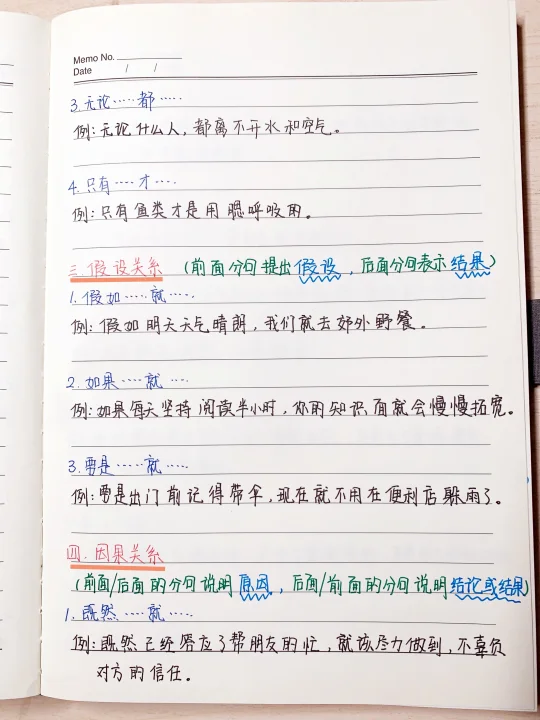 Memo No.
Date / /
3.无论……都……
例：无论什么人，都离不开水和空气。
4.只有……才……
例：只有鱼类才是用腮呼吸的。
三.假设关系（前面分句提出假设，后面分句表示结果）
1.假如……就……
例：假如明天天气晴朗，我们就去郊外野餐。
2.如果……就……
例：如果每天坚持阅读半小时，你的知识面就会慢慢拓宽。
3.要是……就……
例：要是出门前记得带伞，现在就不用在便利店躲雨了。
四.因果关系
（前面/后面的分句说明原因，后面/前面的分句说明结论或结果）
1.既然……就……
例：既然已经答应了帮朋友的忙，就该尽力做到，不辜负
对方的信任。